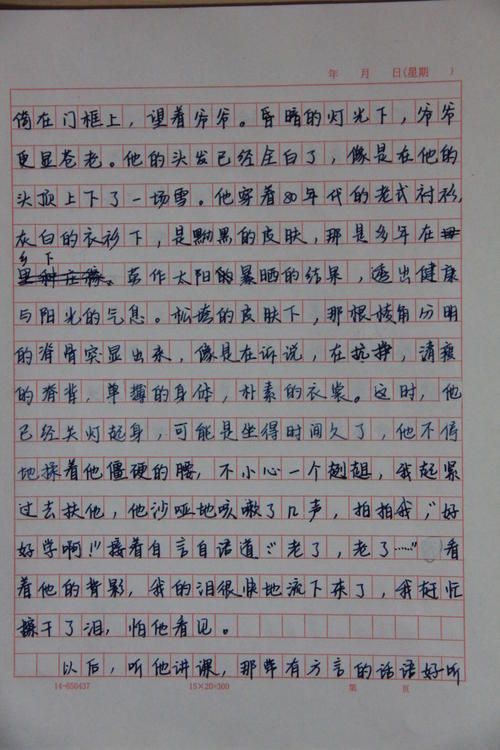 年 月 日(星期 )
倚在门框上，望着爷爷。昏暗的灯光下，爷爷
更显苍老。他的头发已经全白了，像是在他的
头顶上下了一场雪。他穿着80年代的老式衬衫，
灰白的衣衫下，是黝黑的皮肤，那是多年在
乡下
劳作太阳的暴晒的结果，透出健康
与阳光的气息。松垮的皮肤下，那根棱角分明
的脊骨突显出来，像是在诉说，在抗挣，清瘦
的脊背，单薄的身体，朴素的衣裳。这时，他
已经关灯起身，可能是坐得时间久了，他不停
地揉着他僵硬的腰，不小心一个趔趄，我起紧
过去扶他，他沙哑地咳嗽了几声，拍拍我，“好
好学啊！”接着自言自语道：“老了，老了……”看
着他的背影，我的泪很快地流下来了，我赶忙
擦干了泪，怕他看见。
以后，听他讲课，那带有方言的话语好听
14-650437 15×20=300 第 页